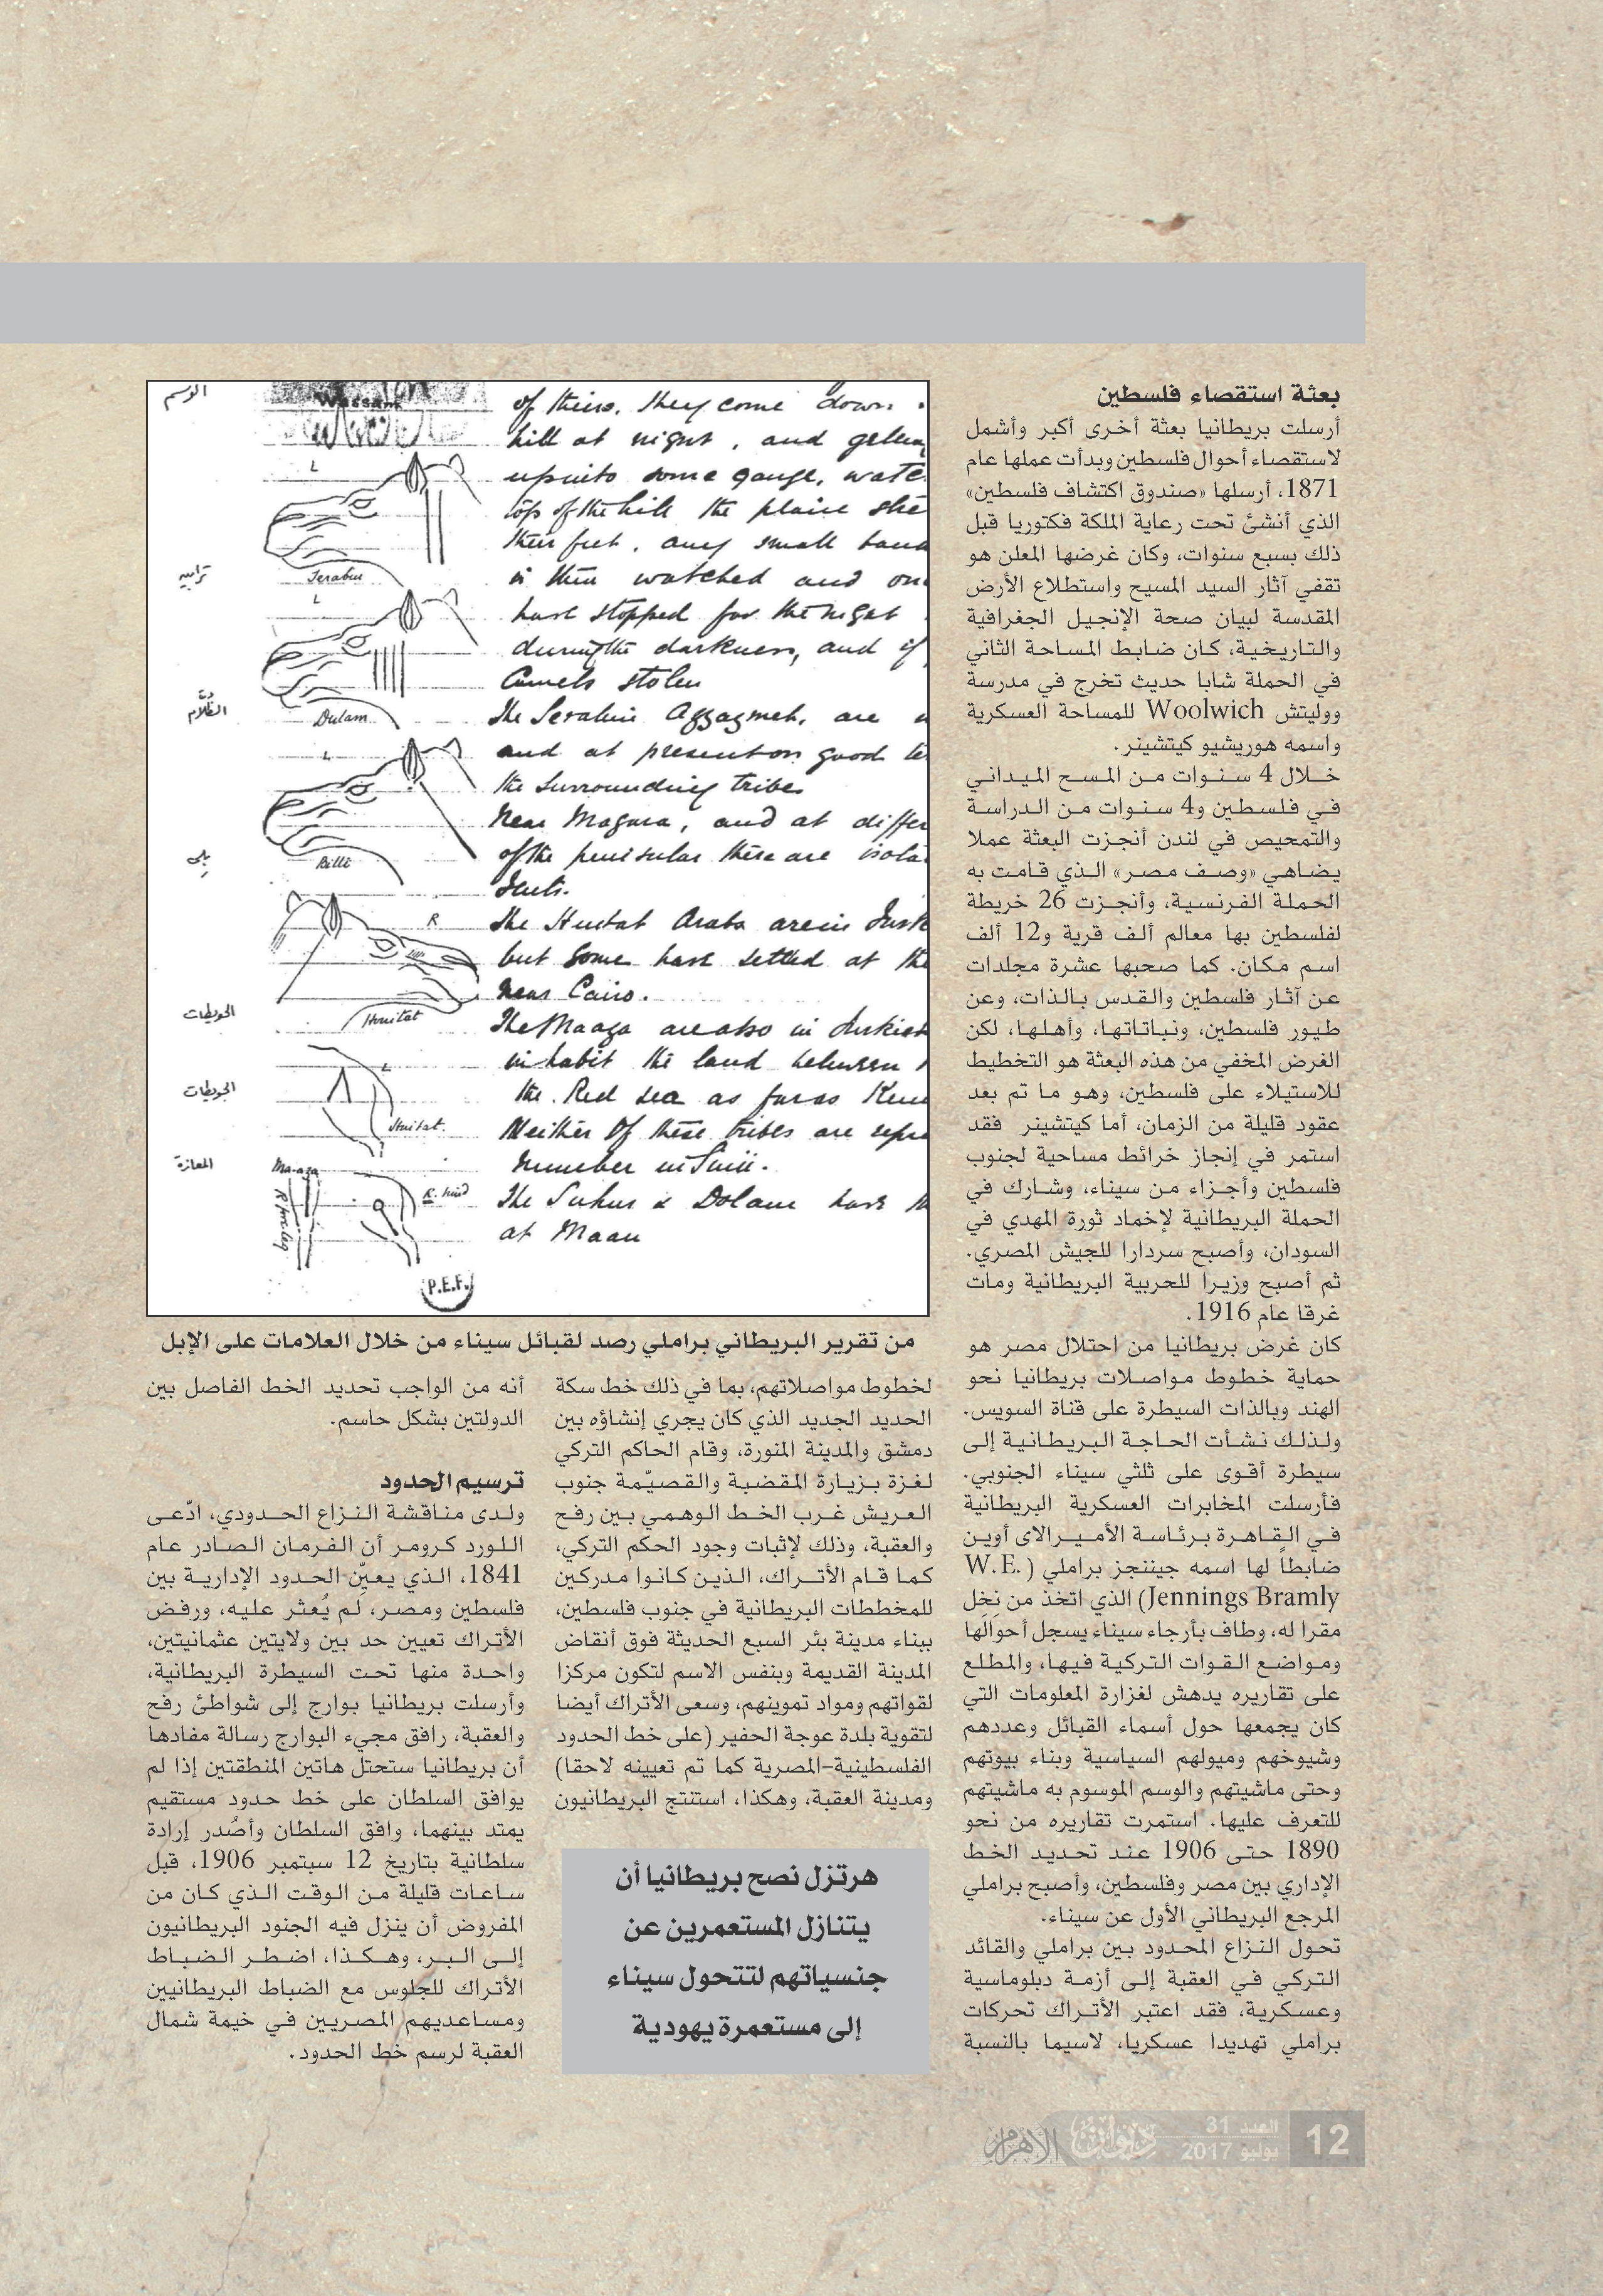 بعثة استقصاء فلسطين
أرسلت بريطانيا بعثة أخرى أكبر وأشمل
لاستقصاء أحوال فلسطين وبدأت عملها عام
1871، أرسلها «صندوق اكتشاف فلسطين»
الذي أنشئ تحت رعاية الملكة فكتوريا قبل
ذلك بسبع سنوات، وكان غرضها المعلن هو
تقفي آثار السيد المسيح واستطلاع الأرض
المقدسة لبيان صحة الإنجيل الجغرافية
والتاريخية، كان ضابط المساحة الثاني
في الحملة شابا حديث تخرج في مدرسة
ووليتش Woolwich للمساحة العسكرية
واسمه هوريشيو كيتشينر.
خلال 4 سنوات من المسح الميداني
في فلسطين و4 سنوات من الدراسة
والتمحيص في لندن أنجزت البعثة عملا
يضاهي «وصف مصر» الذي قامت به
الحملة الفرنسية، وأنجزت 26 خريطة
لفلسطين بها معالم ألف قرية و12 ألف
اسم مكان. كما صحبها عشرة مجلدات
عن آثار فلسطين والقدس بالذات، وعن
طيور فلسطين، ونباتاتها، وأهلها، لكن
الغرض المخفي من هذه البعثة هو التخطيط
للاستيلاء على فلسطين، وهو ما تم بعد
عقود قليلة من الزمان، أما كيتشينر فقد
استمر في إنجاز خرائط مساحية لجنوب
فلسطين وأجزاء من سيناء، وشارك في
الحملة البريطانية لإخماد ثورة المهدي في
السودان، وأصبح سردارا للجيش المصري.
ثم أصبح وزيرا للحربية البريطانية ومات
غرقا عام 1916.
كان غرض بريطانيا من احتلال مصر هو
حماية خطوط مواصلات بريطانيا نحو
الهند وبالذات السيطرة على قناة السويس.
ولذلك نشأت الحاجة البريطانية إلى
سيطرة أقوى على ثلثي سيناء الجنوبي.
فأرسلت المخابرات العسكرية البريطانية
في القاهرة برئاسة الأميرالاى أوين
ضابطاً لها اسمه جيننجز براملي (W.E.
Jennings Bramly) الذي اتخذ من نَخِل
مقرا له، وطاف بأرجاء سيناء يسجل أحوالها
ومواضع القوات التركية فيها، والمطلع
على تقاريره يدهش لغزارة المعلومات التي
كان يجمعها حول أسماء القبائل وعددهم
وشيوخهم وميولهم السياسية وبناء بيوتهم
وحتى ماشيتهم والوسم الموسوم به ماشيتهم
للتعرف عليها. استمرت تقاريره من نحو
1890 حتى 1906 عند تحديد الخط
الإداري بين مصر وفلسطين، وأصبح براملي
المرجع البريطاني الأول عن سيناء.
تحول النزاع المحدود بين براملي والقائد
التركي في العقبة إلى أزمة دبلوماسية
وعسكرية، فقد اعتبر الأتراك تحركات
براملي تهديدا عسكريا، لاسيما بالنسبة
الوسم
Wassam
of theirs. They come down
hill at night, and
up into some gauge,
top of the hill the plain
their feet. any small
in then watched and
have stopped for the night
during the darkness, and if
Camels stolen
The Azzazmeh, are
and at present on good
the surrounding tribes
Near Magara, and at
of the peninsular there are
tents.
The Huitat Arabs are in
but some have settled at
near Cairo.
The Maaza are also in
inhabit the land between
the Red sea as far as
Neither of these tribes are
number in Sinii.
The Suhur & Dolam have
at Maan
L
Terabin
L
الظلام
Dulam
L
بلى
Billi
R
الحويطات
Huitat
الحويطات
L
Huitat
المعازة
Ma-aza
P.E.F.
من تقرير البريطاني براملي رصد لقبائل سيناء من خلال العلامات على الإبل
لخطوط مواصلاتهم، بما في ذلك خط سكة
الحديد الجديد الذي كان يجري إنشاؤه بين
دمشق والمدينة المنورة، وقام الحاكم التركي
لغزة بزيارة المقضبة والقصيّمة جنوب
العريش غرب الخط الوهمي بين رفح
والعقبة، وذلك لإثبات وجود الحكم التركي،
كما قام الأتراك، الذين كانوا مدركين
للمخططات البريطانية في جنوب فلسطين،
ببناء مدينة بئر السبع الحديثة فوق أنقاض
المدينة القديمة وبنفس الاسم لتكون مركزا
لقواتهم ومواد تموينهم، وسعى الأتراك أيضا
لتقوية بلدة عوجة الحفير (على خط الحدود
الفلسطينية–المصرية كما تم تعيينه لاحقا)
ومدينة العقبة، وهكذا، استنتج البريطانيون
هرتزل نصح بريطانيا أن
يتنازل المستعمرين عن
جنسياتهم لتتحول سيناء
إلى مستعمرة يهودية
أنه من الواجب تحديد الخط الفاصل بين
الدولتين بشكل حاسم.
ترسيم الحدود
ولدى مناقشة النزاع الحدودي، ادّعى
اللورد كرومر أن الفرمان الصادر عام
1841، الذي يعيّن الحدود الإدارية بين
فلسطين ومصر، لم يُعثر عليه، ورفض
الأتراك تعيين حد بين ولايتين عثمانيتين،
واحدة منها تحت السيطرة البريطانية،
وأرسلت بريطانيا بوارج إلى شواطئ رفح
والعقبة، رافق مجيء البوارج رسالة مفادها
أن بريطانيا ستحتل هاتين المنطقتين إذا لم
يوافق السلطان على خط حدود مستقيم
يمتد بينهما، وافق السلطان وأصُدر إرادة
سلطانية بتاريخ 12 سبتمبر 1906، قبل
ساعات قليلة من الوقت الذي كان من
المفروض أن ينزل فيه الجنود البريطانيون
إلى البر، وهكذا، اضطر الضباط
الأتراك للجلوس مع الضباط البريطانيين
ومساعديهم المصريين في خيمة شمال
العقبة لرسم خط الحدود.
12
العدد 31
يوليو 2017
ديوان
الأهرام